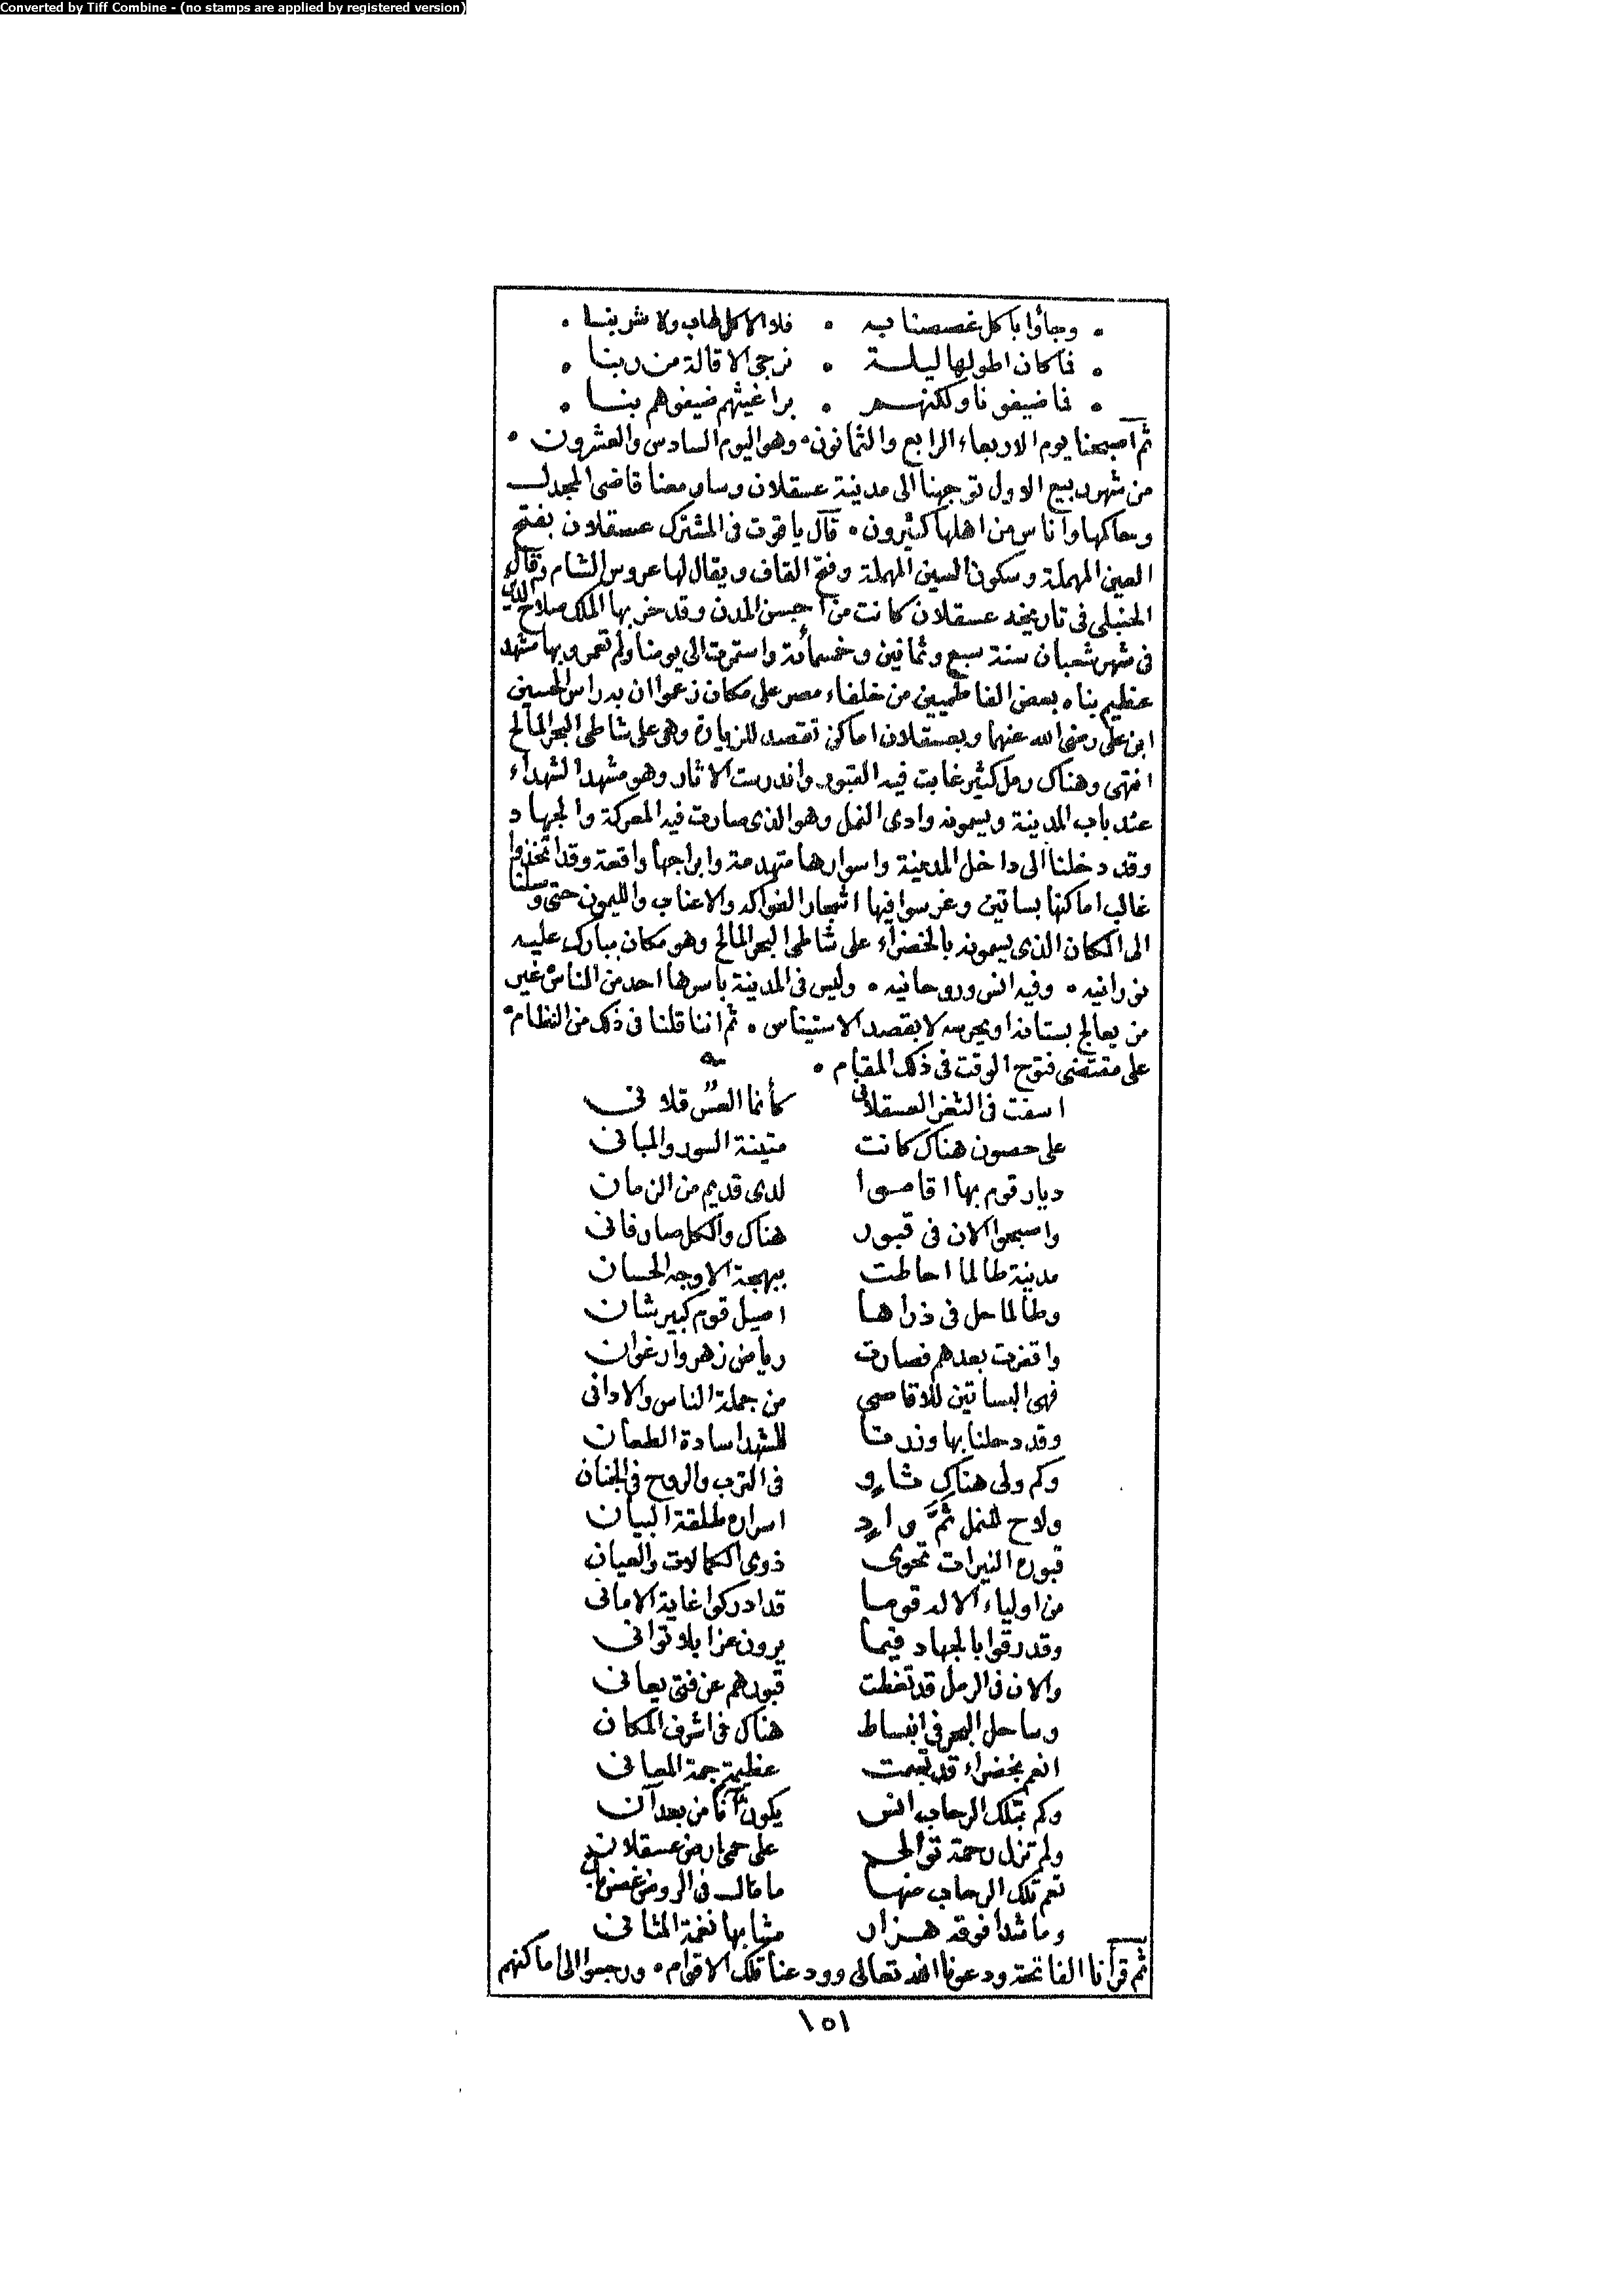 Converted by Tiff Combine - (no stamps are applied by registered version)
• وجاؤا باكل غصصنا به • فلا الاكل طاب ولا شربنا •
• فما كان اطولها ليلة • نرجى الاقالة من ربنا •
• فما ضيفونا ولكنهم • براغيثهم ضيفوهم بنا •
ثم اصبحنا يوم الاربعاء الرابع والثمانون • وهو اليوم السادس والعشرون •
من شهر ربيع الاول توجهنا الى مدينة عسقلان وسار معنا قاضى المجدل
وحاكمها واناس من اهلها كثيرون • قال ياقوت فى المشترك عسقلان بفتح
العين المهملة وسكون السين المهملة وفتح القاف ويقال لها عروس الشام وقال
الحنبلى فى تاريخه عسقلان كانت من احسن المدن وقد خربها الملك صلاح الدين
فى شهر شعبان سنة سبع وثمانين وخمسمائة واستمرت الى يومنا ولم تعمر وبها مشهد
عظيم بناه بعض الفاطميين من خلفاء مصر على مكان زعموا ان به راس الحسين
ابن على رضى الله عنهما وبعسقلان اماكن تقصد للزيارة وهى على شاطى البحر المالح
انتهى وهناك رمل كثير غابت فيه القبور واندرست الاثار وهو مشهد الشهداء
عند باب المدينة ويسمونه وادى النمل وهو الذى صارت فيه المعركة والجهاد
وقد دخلنا الى داخل المدينة واسوارها متهدمة وابراجها واقعة وقد اتخذوا
غالب اماكنها بساتين وغرسوا فيها اشجار الفواكه والاعناب والليمون حتى وصلنا
الى المكان الذى يسمونه بالخضراء على شاطى البحر المالح وهو مكان مبارك عليه
نورانيه • وفيه انس وروحانيه • وليس فى المدينة باسرها احد من الناس غير
من يعالج بستانه او يحرسه لا بقصد الاستيناس • ثم اننا قلنا فى ذلك من النظام •
على مقتضى فتوح الوقت فى ذلك المقام •
اسفت فى الثغر العسقلانى كأنما العس قلانى
على حصون هناك كانت متينة السور والمبانى
ديار قوم بها اقاموا لدى قديم من الزمان
واصبحوا الان فى قبور هناك والكل صار فانى
مدينة طالما احاطت ببهجة الاوجه الحسان
وطالما حل فى ذراها اصيل قوم كبير شان
واقفرت بعدهم فصارت رياض زهر وارغوان
فهى البساتين للاقاصى من جملة الناس والادانى
وقد دخلنا بها وزرنا للشهدا سادة الطعان
وكم ولى هناك ثاو فى الترب والروح فى الجنان
ولاح للنمل ثم واد اسراره طلقة البيان
قبوره النيرات تحوى ذوى الكمالات والعيان
من اولياء الاله قوما قد ادركوا غاية الامانى
وقد رقوا بالجهاد فيما يرون عزا بلا توانى
والان فى الرمل قد تغطت قبورهم عن فتى يعانى
وساحل البحر فى انبساط هناك فى اشرف المكان
انعم بخضراء قد تسمت عظيمة جمة المعانى
وكم بتلك الرحاب انس يكون آنا من بعد آن
ولم تزل رحمة توالى على حمى ارض عسقلان
تعم تلك الرحاب منها ما مال فى الروض غصن بان
وما شدا فوقه هزار مشابها نغمة المثانى
ثم قرأنا الفاتحة ودعونا الله تعالى وودعنا تلك الاقوام • ورجعوا الى اماكنهم
١٥١